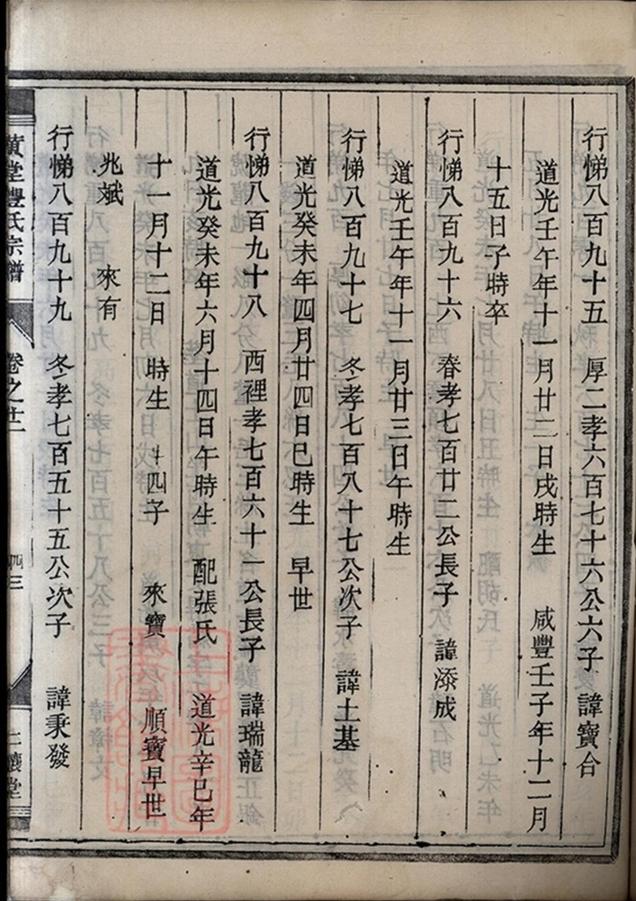 行悌八百九十五　厚二孝六百七十六公六子　諱寶台
道光壬午年十一月廿二日戌時生　咸豐壬子年十二月
十五日子時卒
行悌八百九十六　春孝七百廿二公長子　諱添成
道光壬午年十一月廿三日午時生
行悌八百九十七　冬孝七百八十七公次子　諱土基
道光癸未年四月廿四日巳時生　早世
行悌八百九十八　西裡孝七百六十一公長子　諱瑞龍
道光癸未年六月十四日午時生　配張氏　道光辛巳年
十一月十二日　時生　四子　來寶　順寶早世
兆斌　來有
行悌八百九十九　冬孝七百五十五公次子　諱秉發
黃堂豐氏宗譜　卷之廿二　四三